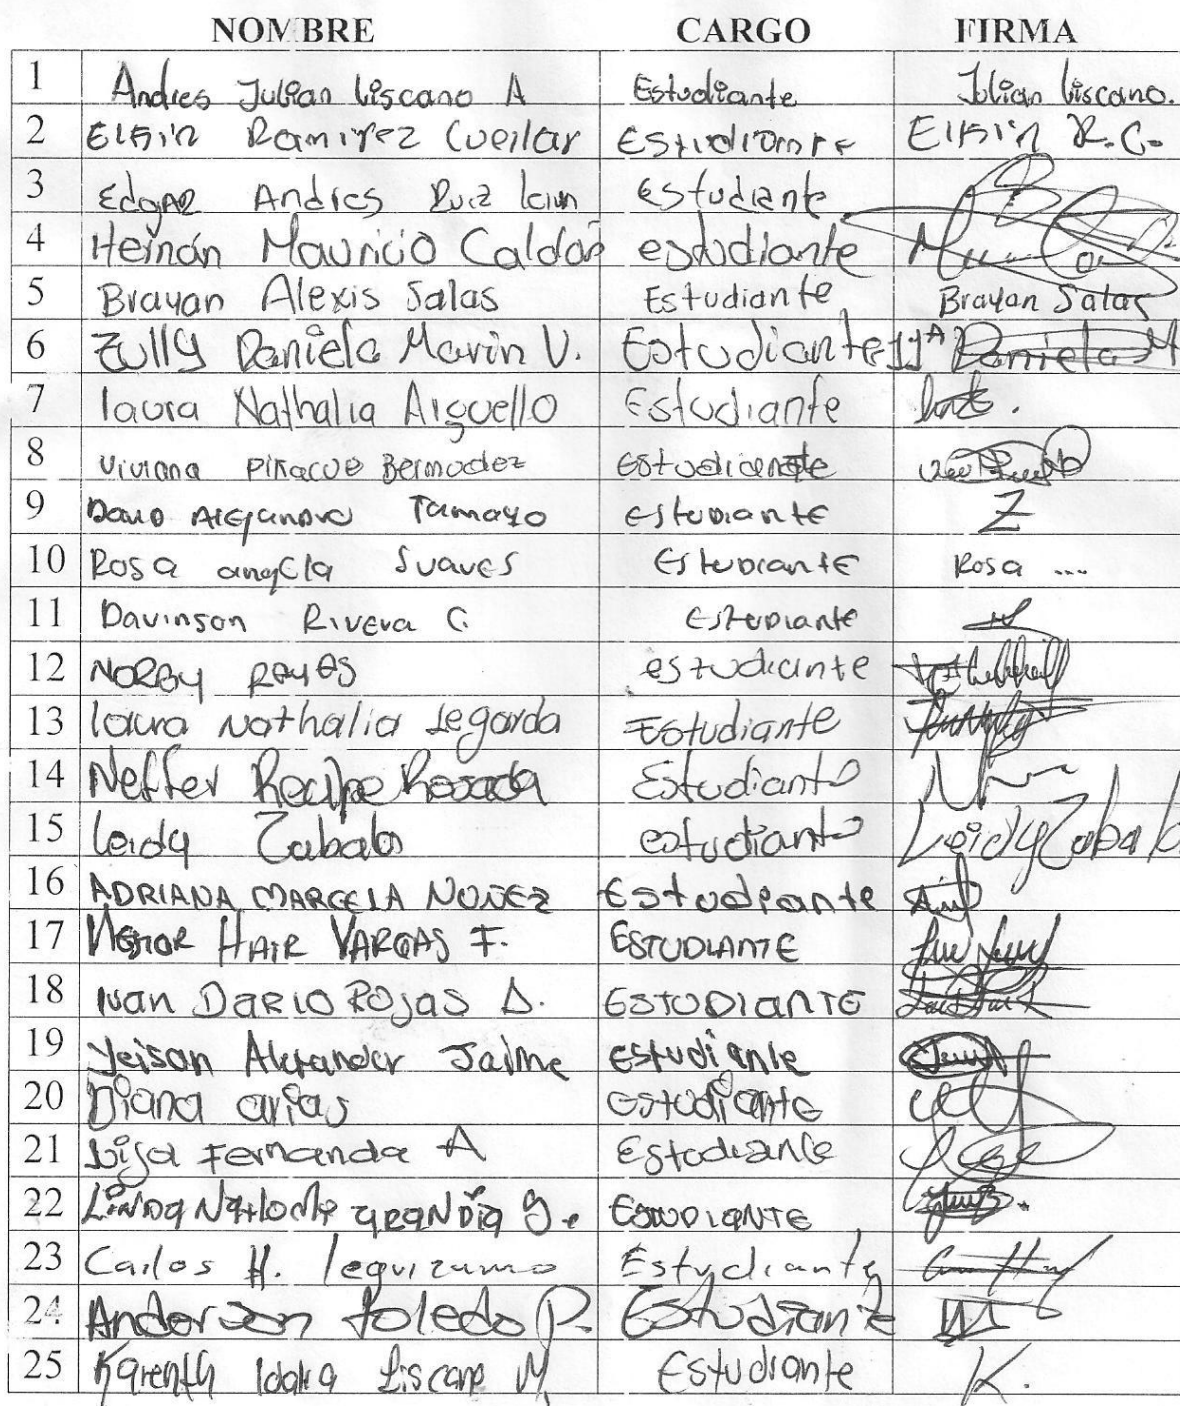 NOMBRE CARGO FIRMA
1 Andres Julian Liscano A Estudiante Julian Liscano.
2 Elkin Ramirez Cuellar Estudiante Elkin R.C.
3 Edgar Andres Ruiz Estudiante
4 Hernán Mauricio Caldón estudiante
5 Brayan Alexis Salas Estudiante Brayan Salas
6 Zully Daniela Marin V. Estudiante 11A Daniela M
7 laura Nathalia Arguello Estudiante
8 Viviana Piñacue Bermudez estudiante
9 David Alejandro Tamayo estudiante Z
10 Rosa angela Suares Estudiante Rosa ...
11 Davinson Rivera C. Estudiante
12 NORBY REYES estudiante
13 laura Nathalia Legarda Estudiante
14 Neffer Estudiante
15 Leidy Zabala estudiante Leidy Zabala
16 ADRIANA MARCELA NUÑEZ Estudiante
17 NESTOR HAIR VARGAS F. ESTUDIANTE
18 Ivan DARIO ROJAS D. ESTUDIANTE
19 Yeison Alexander Jaime Estudiante
20 Diana arias estudiante
21 Luisa Fernanda A Estudiante
22 LINDA ESTUDIANTE
23 Carlos H. leguizamo Estudiante
24 Anderson Toledo P. Estudiante
25 Karenth Liscano M. Estudiante K.